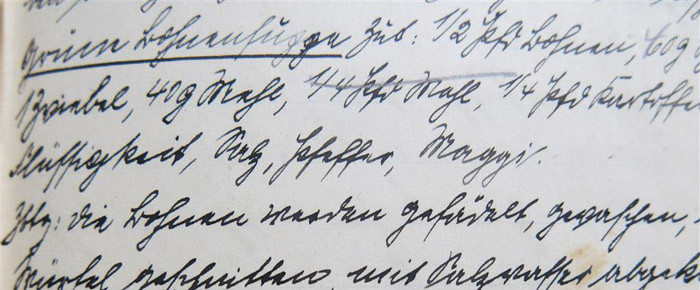 grüne Bohnensuppe Zut: 1/2 Pfd Bohnen, 60g
1 Zwiebel, 40g Mehl, 1/4 Pfd Mehl, 1/4 Pfd Kartoffe
Flüssigkeit, Salz, Pfeffer, Maggi.
Zbtg: die Bohnen werden gefädelt, gewaschen,
Würfel geschnitten, mit Salzwasser abgek